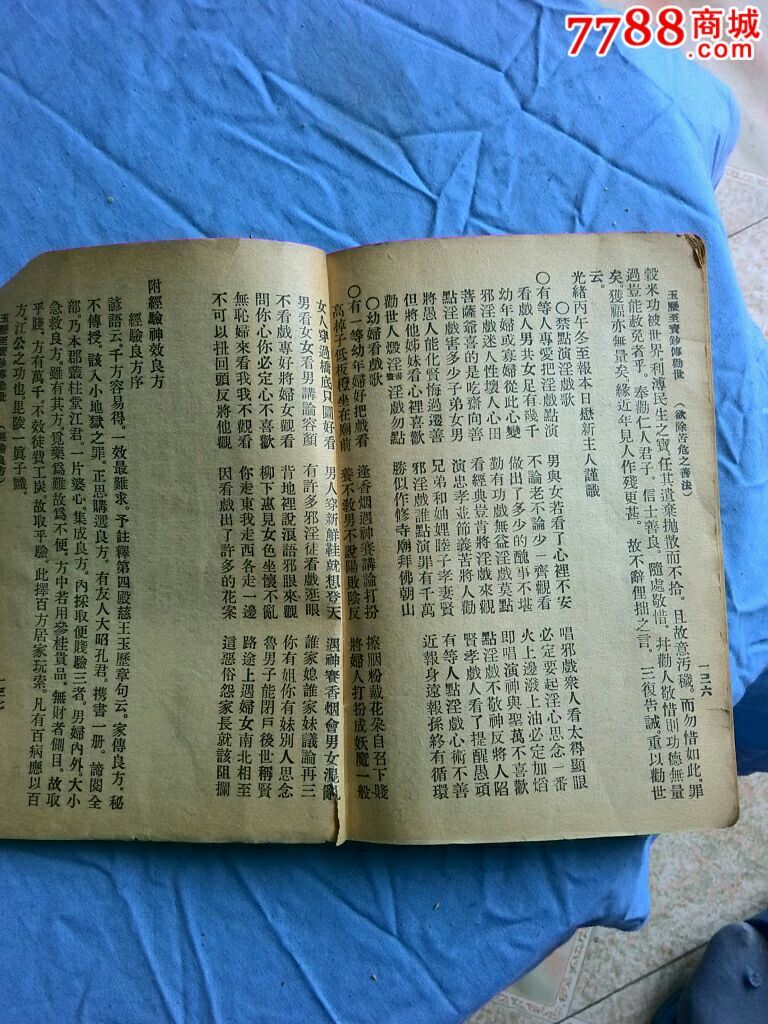 7788商城
.com
玉歷至寶鈔傳勸世 （欲除苦危之善法） 一三六
穀米功被世界。利溥民生之寶。任其遺棄拋散而不拾。且故意汚穢。而勿惜如此。罪
過豈能赦免者乎。奉勸仁人君子。信士善良。隨處敬惜。幷勸人敬惜。則功德無量
矣。獲福亦無量矣。緣近年見人作殘更甚。故不辭俚拙之言。三復告誡。重以勸世
云。
光緒丙午冬至報本日懋新主人謹識
〇禁點演淫戲歌
〇有等人專愛把淫戲點演 男與女若看了心裡不安 唱邪戲衆人看太得顯眼
看戲人男共女足有幾千 不論老不論少一齊觀看 必定要起淫心思念一番
幼年婦或寡婦從此心變 做出了多少的醜事不堪 火上邊潑上油必定加熖
邪淫戲迷人性壞人心田 勸有功戲無益淫戲莫點 卽唱演神與聖萬不喜歡
菩薩爺喜的是吃齋向善 看經典豈肯將淫戲來觀 點淫戲不敬神反將人陷
點淫戲害多少子弟女男 演忠孝並節義苦將人勸 賢孝戲人看了提醒愚頑
將愚人能化賢悔過遷善 兄弟和妯娌睦子孝妻賢 有等人點淫戲心術不善
但將他姊妹看心裡喜歡 邪淫戲誰點演罪有千萬 近報身遠報孫終有循環
勸世人燬淫書畫淫戲勿點 勝似作修寺廟拜佛朝山
〇幼婦看戲歌
〇有一等幼年婦好把戲看 逢香烟遇神賽講論打扮 擦胭粉戴花朵自召下賤
高棹子低板櫈坐在廟前 養不敎男不說陽敗陰反 將婦人打扮成妖魔一般
女人穿過橋底只圖好看 男人穿新鮮鞋就想登天 遇神賽香烟會男女混亂
男看女女看男講論容顏 有許多邪淫徒看戲逛眼 誰家媳誰家妹議論再三
不看戲專好將婦女觀看 背地裡說淚語邪眼來觀 你有姐你有妹別人思念
問你心你必定心不喜歡 柳下惠見女色坐懷不亂 魯男子能閉戶後世稱賢
無恥婦來看我我不觀看 你走東我走西各走一邊 路途上遇婦女南北相至
不可以扭回頭反將他觀 因看戲出了許多的花案 這惡俗怨家長就該阻攔
附經驗神效良方
經驗良方序
諺語云。千方容易得。一效最難求。予註釋第四殿慈王玉歷章句云。家傳良方。秘
不傳授。該入小地獄之罪。正思購選良方。有友人大昭孔君。携書一册。諦閱全
部。乃本郡叢桂堂江君。一片婆心。集成良方。內採取便賤驗三者。男婦內外。大小
急救良方。雖有其方。覓藥爲難故爲不便。方中若用參桂貴品。無財者側目。故取
乎賤。方有萬千。不效徒費工炭。故取乎驗。此擇百方居家玩索。凡有百病應以百
方。江公之功也。毘陵一眞子識。
玉歷至寶鈔傳勸世 （經驗良方） 一三七